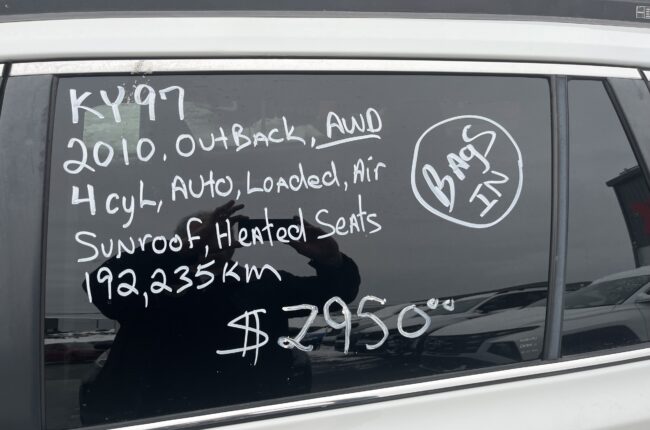 KY97
2010, OutBack, AWD
4 cyL, Auto, Loaded, Air
Sunroof, Heated Seats
192,235 Km
$2950.00
BAgS
IN